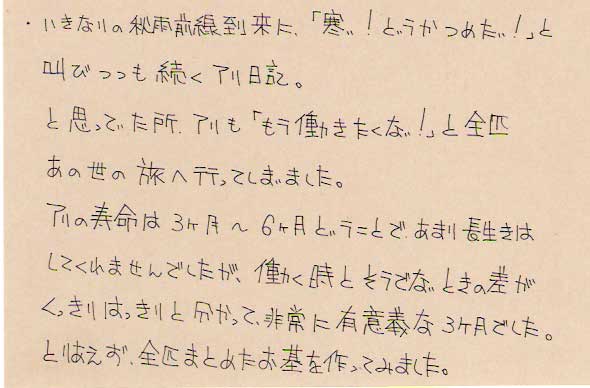 ・いきなりの秋雨前線到来に、「寒い!どうかつめたい!」と
叫びつつも続くアリ日記。
と思っていた所、アリも「もう働きたくない!」と全匹
あの世の旅へ行ってしまいました。
アリの寿命は3ヶ月〜6ヶ月ということで、あまり長生きは
してくれませんでしたが、働く時とそうでないときの差が
くっきりはっきりと分かって、非常に有意義な3ヶ月でした。
とりあえず、全匹まとめたお墓を作ってみました。